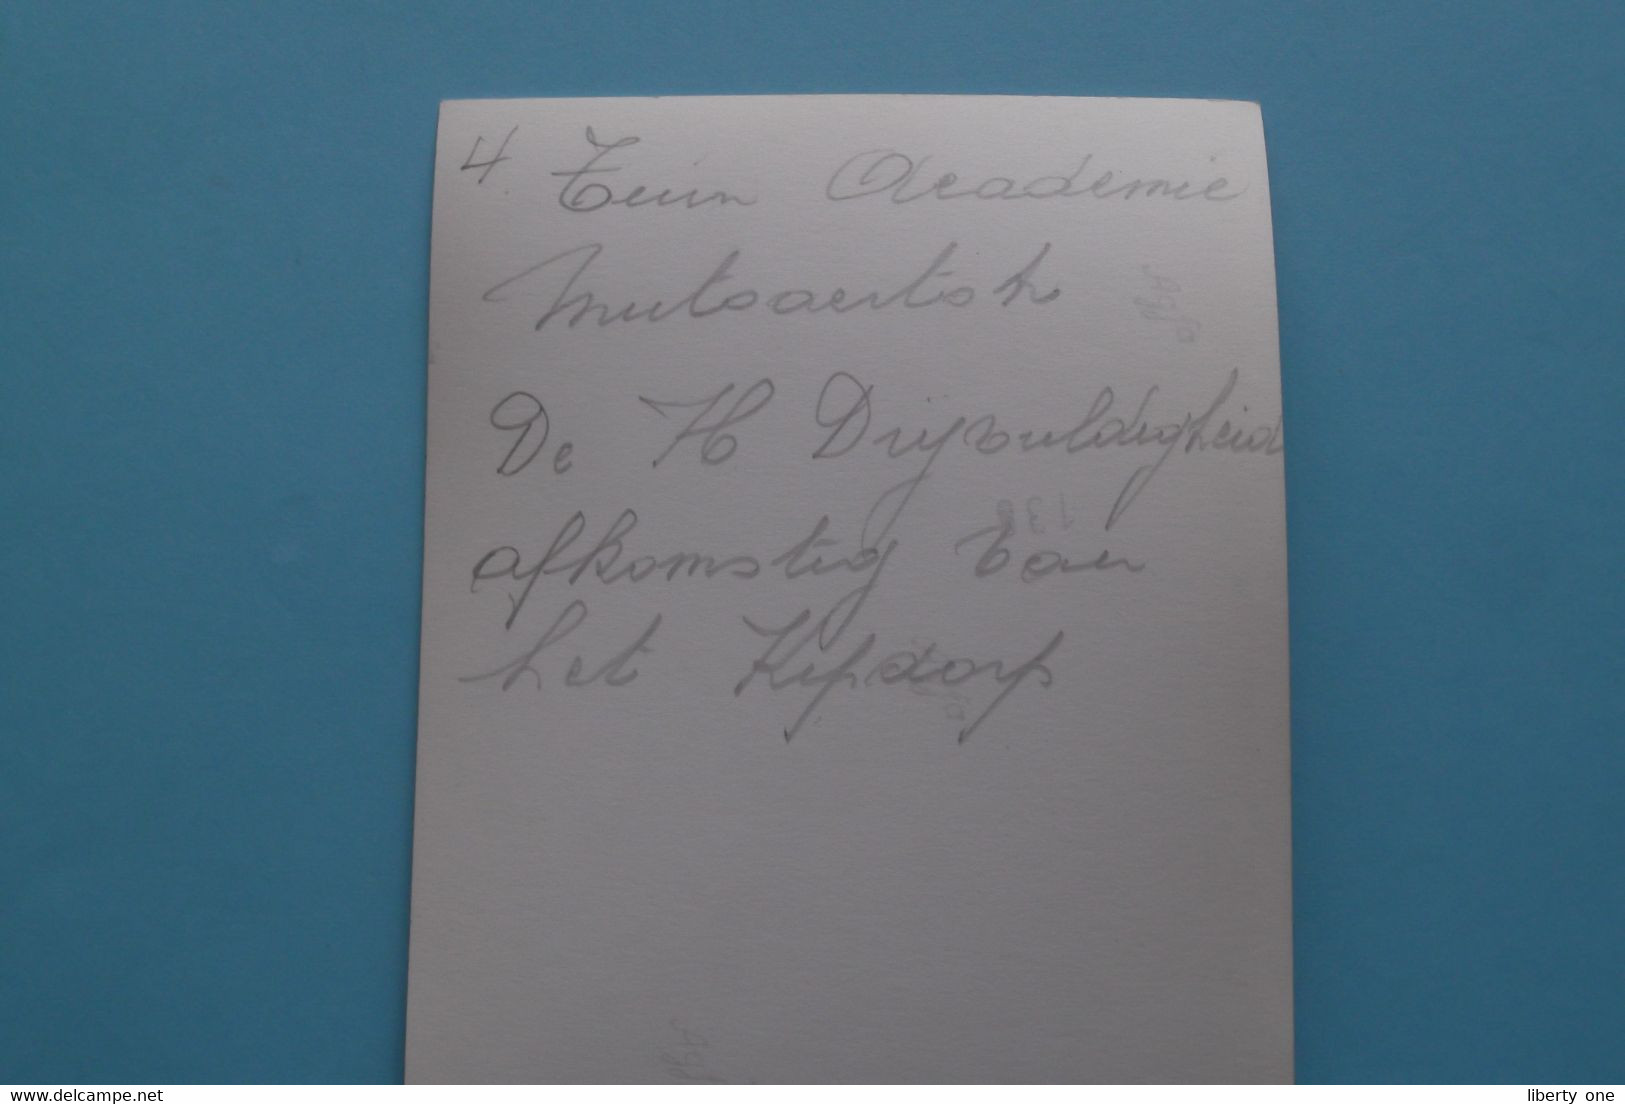 4. Tuin Academie
Mutsaertstr
De H Drijvuldigheid
afkomstig van
het Kipdorp
138
Agfa
delcampe.net
liberty one